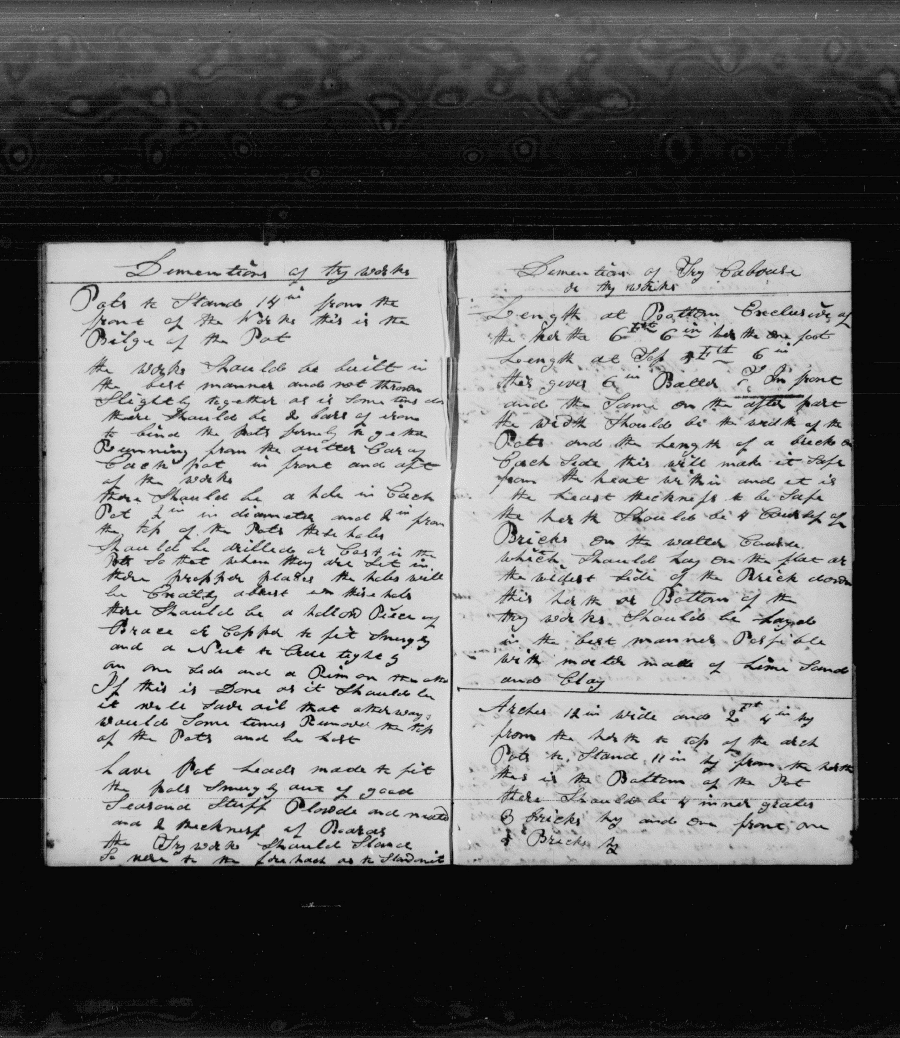 Dimentions of try works
Pots to Stand 14 in from the
front of the Works this is the
Bilge of the Pot
the works Should be built in
the best manner and not thrown
Slightly together as is Some times
there Should be 2 bars of iron
to bind the Pots firmly to gether
Running from the outter Ear of
Each pot in front and aft
of the works
there Should be a hole in Each
Pot in in diameter and 2 in from
the top of the Pots these holes
Should be drilled or Cast in the
Pots So that when they are Set in
there propper places the holes will
be Exactly abrest in these hols
there Should be a hollow Piece of
Brace or Copper to fit Snugly
and a Nut to Crue tightly
on one Side and a Rim on the
If this is Done as it Should be
it will Save oil that otherways
would Some times Remove the top
of the Pots and be lost
have Pot heads made to fit
the pots Snugly out of good
Seasond Stuff Plowde and
and 2 thickness of Boards
the Try works Should Stand
So near to the fore hach as to
Dimention of Try Cabouse
or try works
Length at Bottom Exclusive of
the herth 6 Feet 6 in herth one foot
Length at Top Feet 6 in
this gives 6 in Batter In front
and the Same on the after part
the width Should be the width of the
Pots and the Length of a brick on
Each Side this will make it Safe
from the heat within and it is
the least thickness to be Safe
the herth Should be 4 Courses of
Bricks on the water Course
which Should lay on the flat or
the widest Side of the Brick down
this herth or Bottom of the
try works Should be Layed
in the best manner Possible
with morter made of Lime Sand
and Clay
Arches 12 in wide and 2 Feet 4 in hy
from the herth to top of the arch
Pots to Stand 11 in hy from the herth
this is the Bottom of the Pot
there Should be 4 inner grates
3 bricks hy and one front one
Bricks hy